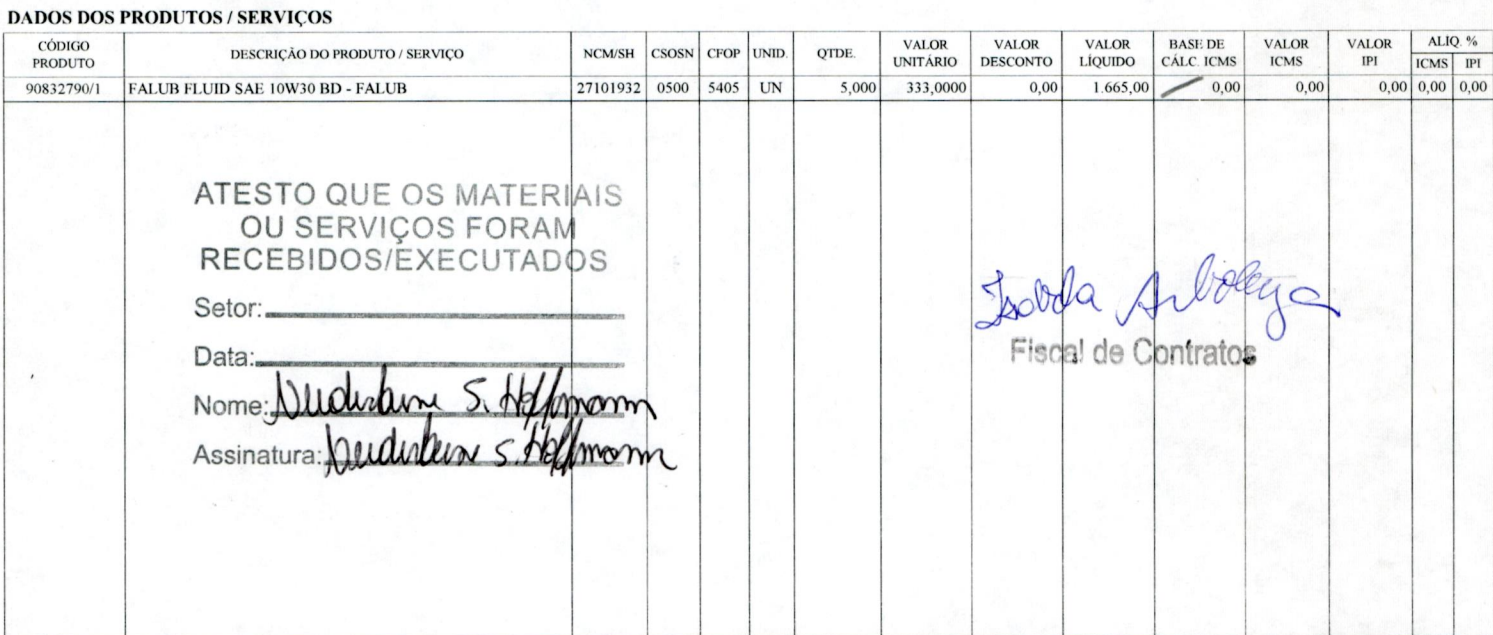 DADOS DOS PRODUTOS / SERVIÇOS
CÓDIGO PRODUTO DESCRIÇÃO DO PRODUTO / SERVIÇO NCM/SH CSOSN CFOP UNID. QTDE. VALOR UNITÁRIO VALOR DESCONTO VALOR LÍQUIDO BASE DE CÁLC. ICMS VALOR ICMS VALOR IPI ALIQ. % ICMS IPI
90832790/1 FALUB FLUID SAE 10W30 BD - FALUB 27101932 0500 5405 UN 5,000 333,0000 0,00 1.665,00 0,00 0,00 0,00 0,00 0,00
ATESTO QUE OS MATERIAIS
OU SERVIÇOS FORAM
RECEBIDOS/EXECUTADOS
Setor:
Data:
Nome: S. Hoffmann
Assinatura: S. Hoffmann
Fiscal de Contratos